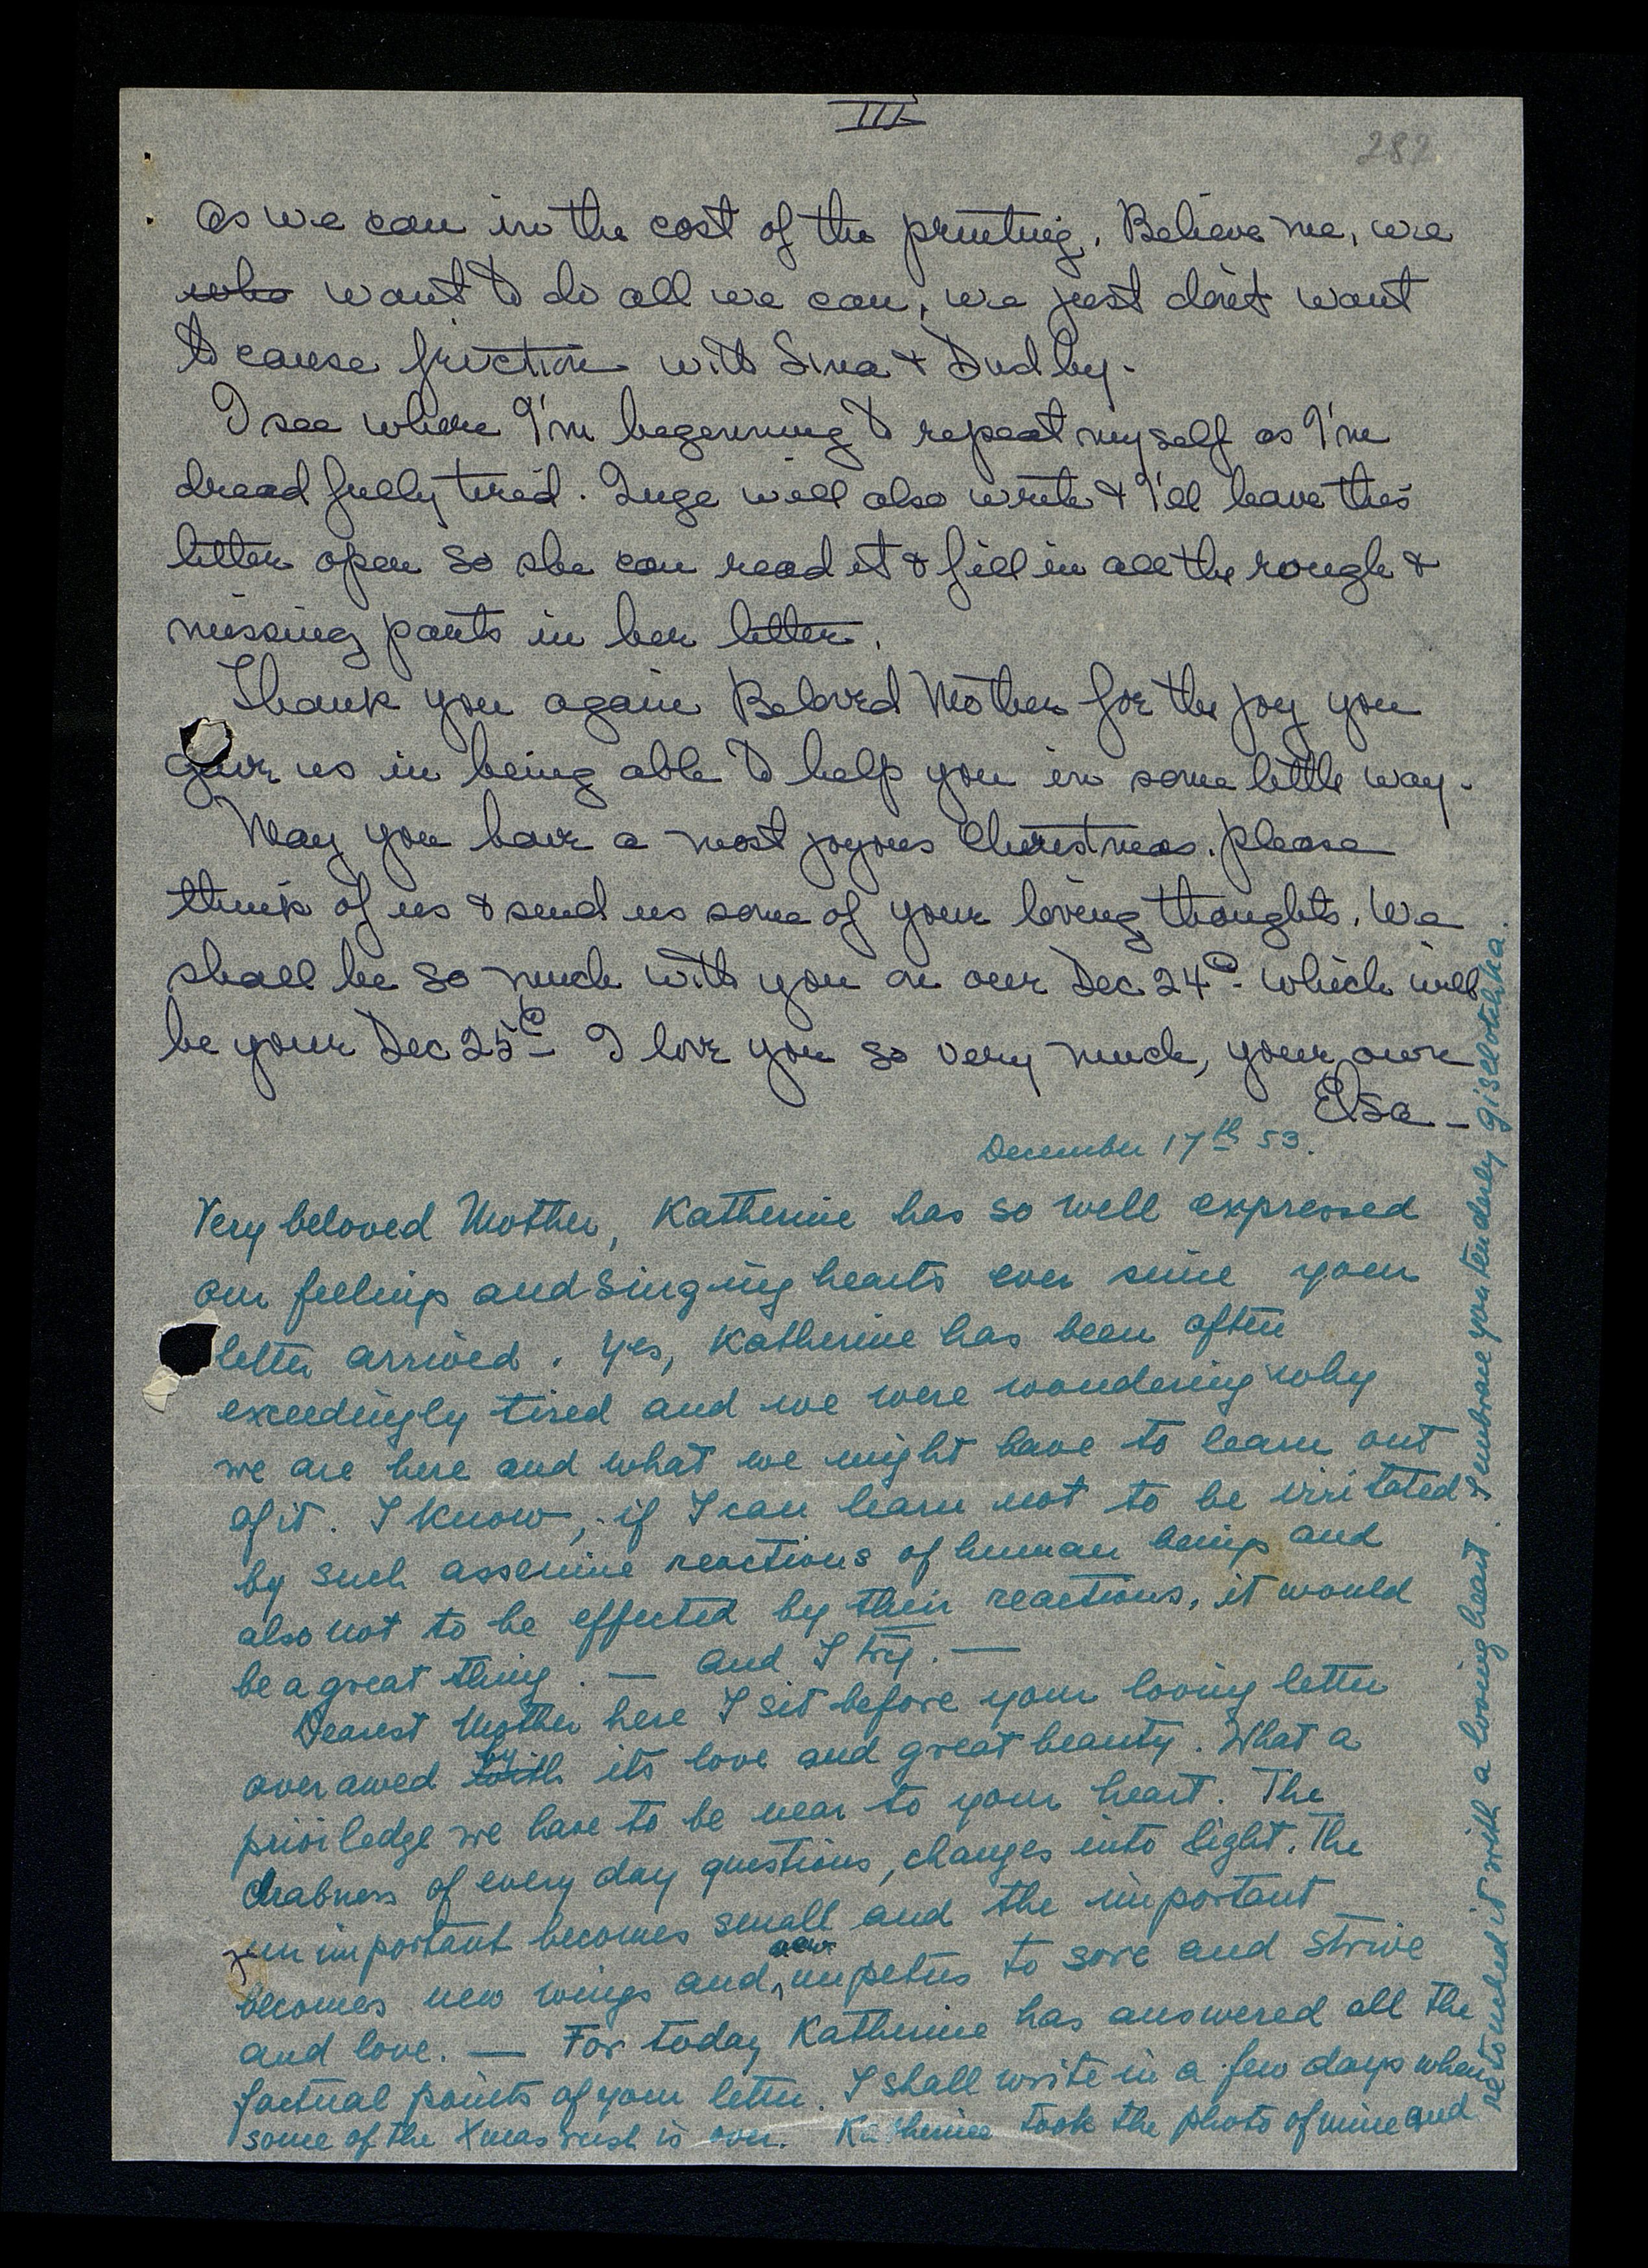 III
282
as we can in the cost of the printing. Believe me, we
who want to do all we can, we just don't want
to cause friction with Sina & Dudley.
I see where I'm beginning to repeat myself as I'm
dreadfully tired. Inge will also write & I'll leave this
letter open so she can read it & fill in all the rough &
missing parts in her letter.
Thank you again Beloved Mother for the joy you
give us in being able to help you in some little way.
May you have a most joyous Christmas. Please
think of us & send us some of your loving thoughts. We
shall be so much with you on our Dec 24th which will
be your Dec 25th I love you so very much, your own
Elsa
December 17th 53.
Very beloved Mother, Katherine has so well expressed
our feelings and singing hearts ever since your
letter arrived. Yes, Katherine has been often
exceedingly tired and we were wondering why
we are here and what we might have to learn out
of it. I know, if I can learn not to be irritated
by such assenine reactions of human beings and
also not to be effected by their reactions, it would
be a great thing. — and I try. —
Dearest Mother here I sit before your loving letter
over awed with by its love and great beauty. What a
priviledge we have to be near to your heart. The
drabness of every day questions, changes into light. The
unimportant becomes small and the important
becomes new wings and new impetus to sore and strive
and love. — For today Katherine has answered all the
factual points of your letter. I shall write in a few days when
some of the Xmas rush is over. Katherine took the photo of mine and
retouched it with a loving heart. I embrace you tenderly